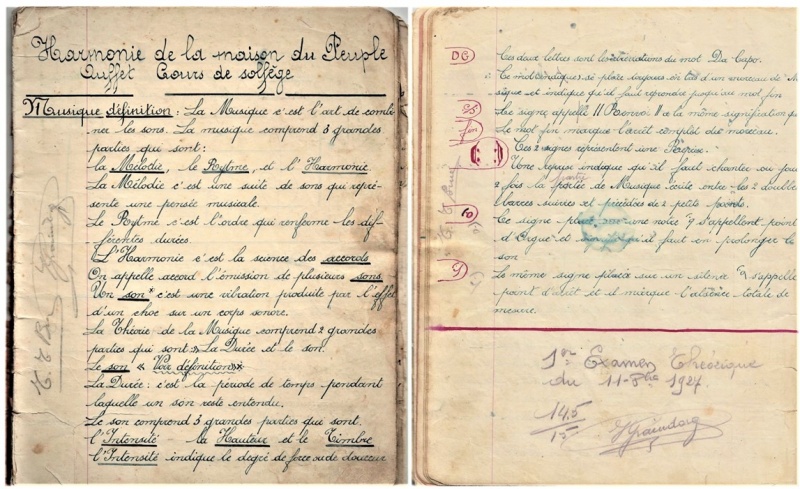 Harmonie de la maison du Peuple
Ouffet Cours de solfège
Musique définition : La Musique c'est l'art de combi-
ner les sons. La musique comprend 3 grandes
parties qui sont :
la Mélodie, le Rytme, et l'Harmonie
La Mélodie c'est une suite de sons qui repré-
sente une pensée musicale.
Le Rytme c'est l'ordre qui renferme les dif-
férentes durées.
L'Harmonie c'est la science des accords
On appelle accord l'émission de plusieurs sons.
Un son* c'est une vibration produite par l'effet
d'un choc sur un corps sonore.
La Théorie de la Musique comprend 2 grandes
parties qui sont » La Durée et le son.
Le son « Voir définition »*
La Durée : c'est la période de temps pendant
laquelle un son reste entendu.
Le son comprend 3 grandes parties qui sont.
l'Intensité la Hauteur et le Timbre
l'Intensité indique le degré de force ou de douceur
DC Ces deux lettres sont les abréviations du mot Da Capo.
Ce mot indique
et indique qu'il faut reprendre jusqu'au mot fin
signe appelé "Renvoi" a la même signification
fin Le mot fin marque l'arrêt complet du morceau.
Ces 2 signes représentent une Reprise.
Une reprise indique qu'il faut chanter ou
2 fois la partie de Musique écrite entre les 2 double
barres suivies et précédées de 2 petits points.
Ce signe placé sur une note s'appellent point
d'Orgue et il faut en prolonger le
son
Le même signe placée sur un silence s'appelle
point d'arrêt et il marque l'absence totale de
mesure.
1er Examen Théorique
du 11-8bre 1927.
14,5
15